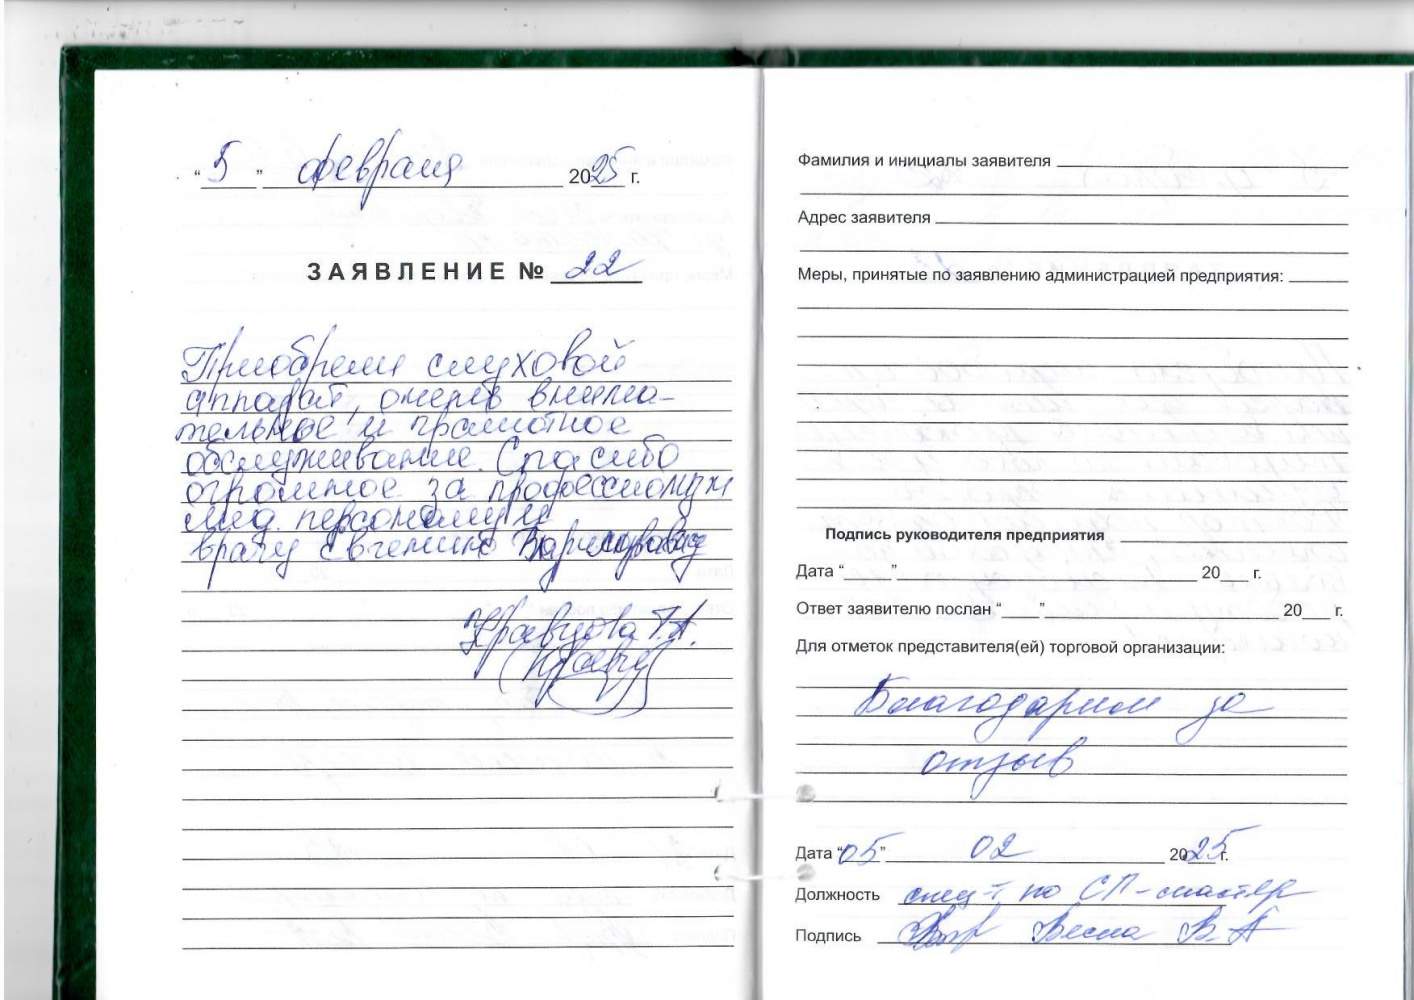 “ 5 ” февраля 2025 г.
ЗАЯВЛЕНИЕ № 22
Приобрели слуховой
аппарат, очень внима-
тельное и грамотное
обслуживание. Спасибо
огромное за профессионализм
мед. персоналу и
врачу Евгению
Кравцова Т.А.
Фамилия и инициалы заявителя
Адрес заявителя
Меры, принятые по заявлению администрацией предприятия:
Подпись руководителя предприятия
Дата “ ” 20 г.
Ответ заявителю послан “ ” 20 г.
Для отметок представителя(ей) торговой организации:
Благодарим за
отзыв
Дата “05” 02 2025 г.
Должность спец-т по СП-мастер
Подпись Весна В.А